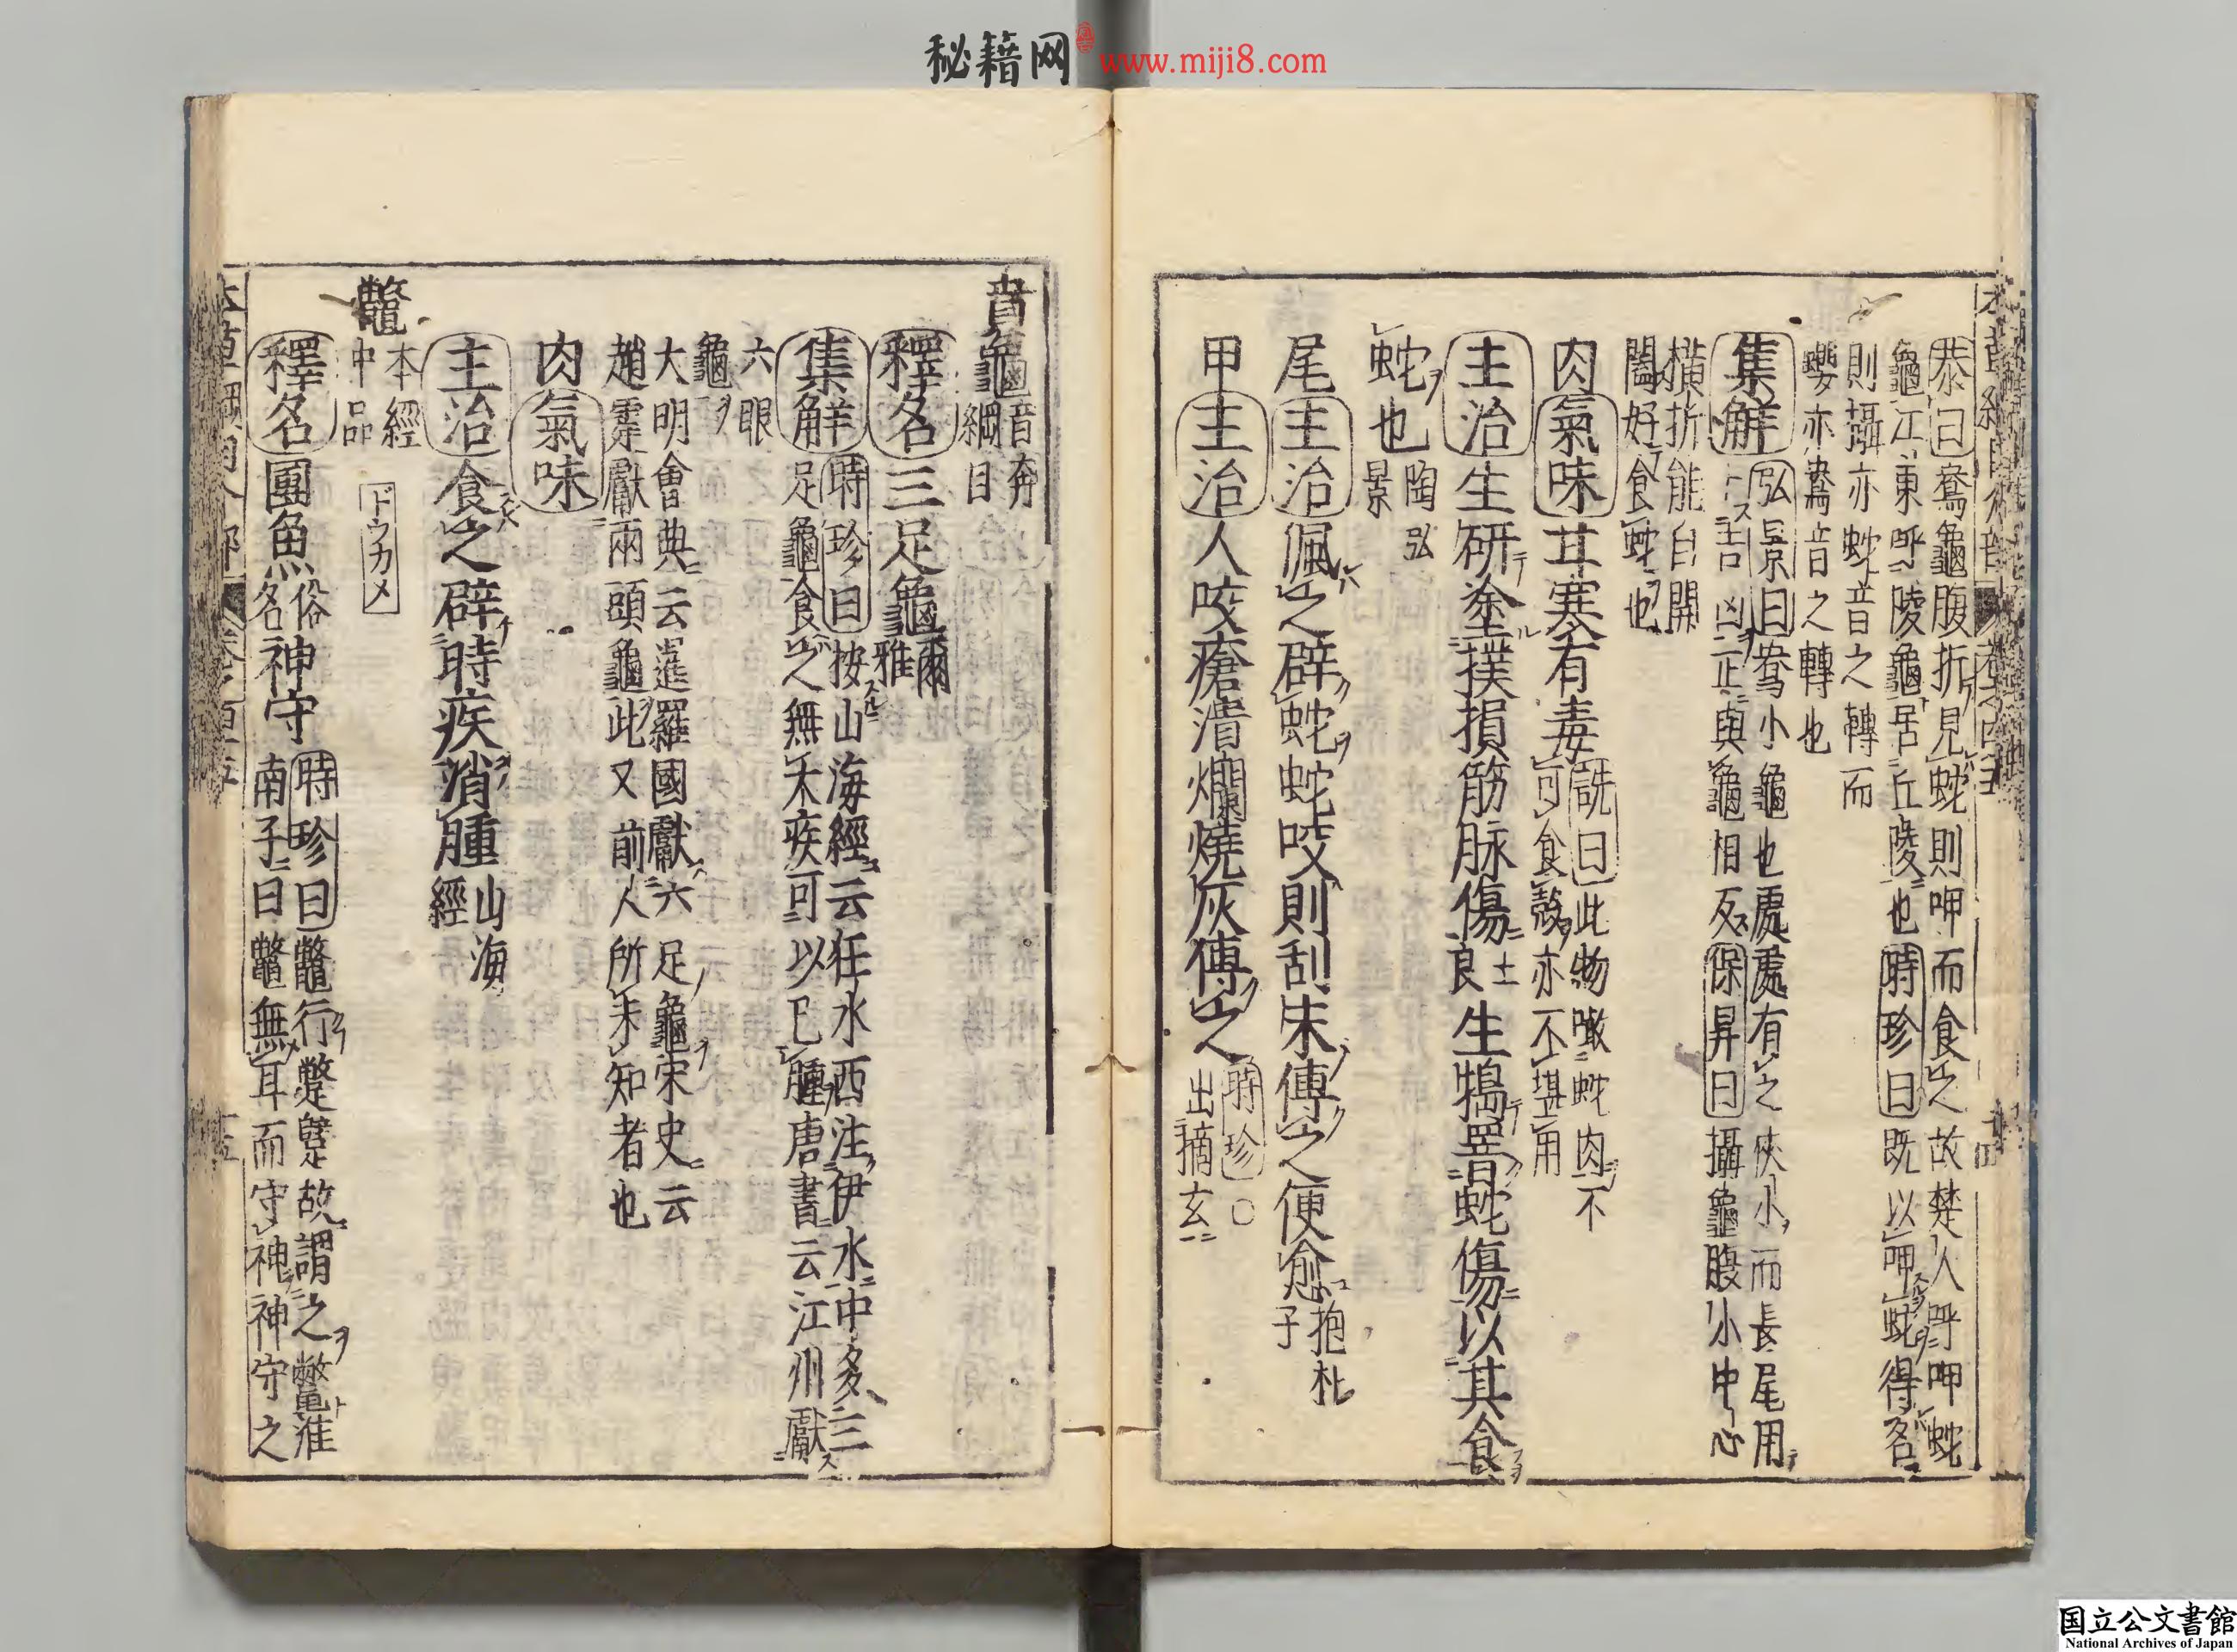 秘籍网 www.miji8.com
恭曰鴦龜腹折見蛇則呷而食之故楚人呼呷蛇
龜江東呼陵龜居丘陵也時珍曰既以呷蛇得名
則攝亦蛇音之轉而
亦鴦音之轉也
集解弘景曰鴦小龜也處處有之狹小而長尾用
吉凶正與龜相反保昇曰攝龜腹小中心
橫折能自開
闔好食蛇也
肉氣味甘寒有毒詵曰此物噉蛇肉不
可食殼亦不堪用
主治生研塗撲損筋脉傷士
良生搗罯蛇傷以其食
蛇也陶弘
景
尾主治佩之辟蛇蛇咬則刮末傅之便愈抱朴
子
甲主治人咬瘡潰爛燒灰傅之時珍〇
出摘玄
賁龜音奔
綱目
釋名三足龜爾
雅
集解時珍曰按山海經云狂水西注伊水中多三
足龜食之無大疾可以已腫唐書云江州獻
六眼
龜
大明會典云暹羅國獻六足龜宋史云
趙霆獻兩頭龜此又前人所未知者也
肉氣味
主治食之辟時疾消腫山海
經
鼈本經
中品
ドウカメ
釋名團魚俗
名神守時珍曰鼈行蹩躠故謂之鼈淮
南子曰鼈無耳而守神神守之
国立公文書館
National Archives of Japan